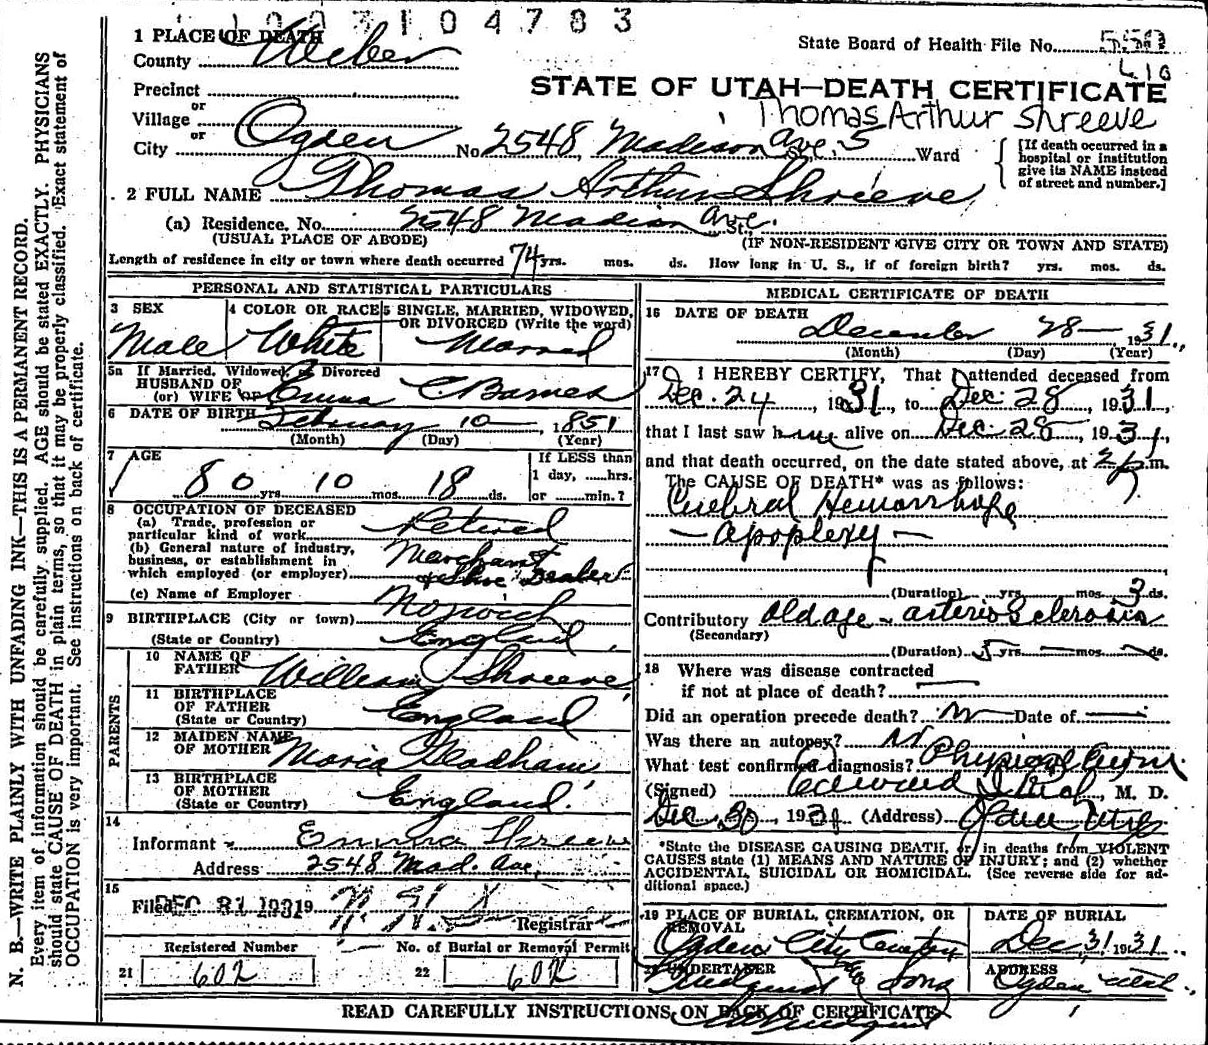 1003104783
1 PLACE OF DEATH
County Weber
State Board of Health File No. 550
410
Precinct
or
Village
or
City Ogden No. 2548 Madison Ave. St. 5 Ward
STATE OF UTAH—DEATH CERTIFICATE
Thomas Arthur Shreeve
[If death occurred in a hospital or institution give its NAME instead of street and number.]
2 FULL NAME Thomas Arthur Shreeve
(a) Residence. No. 2548 Madison Ave. St.
(USUAL PLACE OF ABODE) (IF NON-RESIDENT GIVE CITY OR TOWN AND STATE)
Length of residence in city or town where death occurred 74 yrs. mos. ds. How long in U. S., if of foreign birth? yrs. mos. ds.
PERSONAL AND STATISTICAL PARTICULARS
3 SEX Male
4 COLOR OR RACE White
5 SINGLE, MARRIED, WIDOWED, OR DIVORCED (Write the word) Married
5a If Married, Widowed, or Divorced
HUSBAND OF
(or) WIFE OF Emma C Barnes
6 DATE OF BIRTH February 10 1851
(Month) (Day) (Year)
7 AGE 80 yrs. 10 mos. 18 ds.
If LESS than 1 day, ......hrs. or ......min.?
8 OCCUPATION OF DECEASED
(a) Trade, profession or particular kind of work Retired
(b) General nature of industry, business, or establishment in which employed (or employer) Merchant & Shoe Dealer
(c) Name of Employer
9 BIRTHPLACE (City or town) Norwich
(State or Country) England
PARENTS
10 NAME OF FATHER William Shreeve
11 BIRTHPLACE OF FATHER (State or Country) England
12 MAIDEN NAME OF MOTHER Maria
13 BIRTHPLACE OF MOTHER (State or Country) England
14
Informant Emma Shreeve
Address 2548 Mad. Ave.
15
Filed DEC 31 1931 19
Registrar
Registered Number
21 602
No. of Burial or Removal Permit
22 602
MEDICAL CERTIFICATE OF DEATH
16 DATE OF DEATH
December 28 1931
(Month) (Day) (Year)
17 I HEREBY CERTIFY, That I attended deceased from
Dec. 24, 1931 to Dec. 28, 1931
that I last saw him alive on Dec. 28, 1931,
and that death occurred, on the date stated above, at 2 p m.
The CAUSE OF DEATH* was as follows:
Cerebral Hemorrhage
— apoplexy —
(Duration) yrs. mos. 3 ds.
Contributory Old age - arterio Sclerosis
(Secondary)
(Duration) 5 yrs. — mos. — ds.
18 Where was disease contracted
if not at place of death?
Did an operation precede death? no Date of
Was there an autopsy? no
What test confirmed diagnosis? Physical
(Signed) Edward I Rich, M. D.
Dec. 30, 1931 (Address) Ogden, Utah
*State the DISEASE CAUSING DEATH, or, in deaths from VIOLENT
CAUSES state (1) MEANS AND NATURE OF INJURY; and (2) whether
ACCIDENTAL, SUICIDAL OR HOMICIDAL. (See reverse side for additional space.)
19 PLACE OF BURIAL, CREMATION, OR REMOVAL
Ogden City Cemetery
DATE OF BURIAL
Dec 31, 1931
UNDERTAKER
Lindquist & Sons
ADDRESS
Ogden Utah
READ CAREFULLY INSTRUCTIONS ON BACK OF CERTIFICATE
N. B.—WRITE PLAINLY WITH UNFADING INK—THIS IS A PERMANENT RECORD.
Every item of information should be carefully supplied. AGE should be stated EXACTLY. PHYSICIANS
should state CAUSE OF DEATH in plain terms, so that it may be properly classified. Exact statement of
OCCUPATION is very important. See instructions on back of certificate.